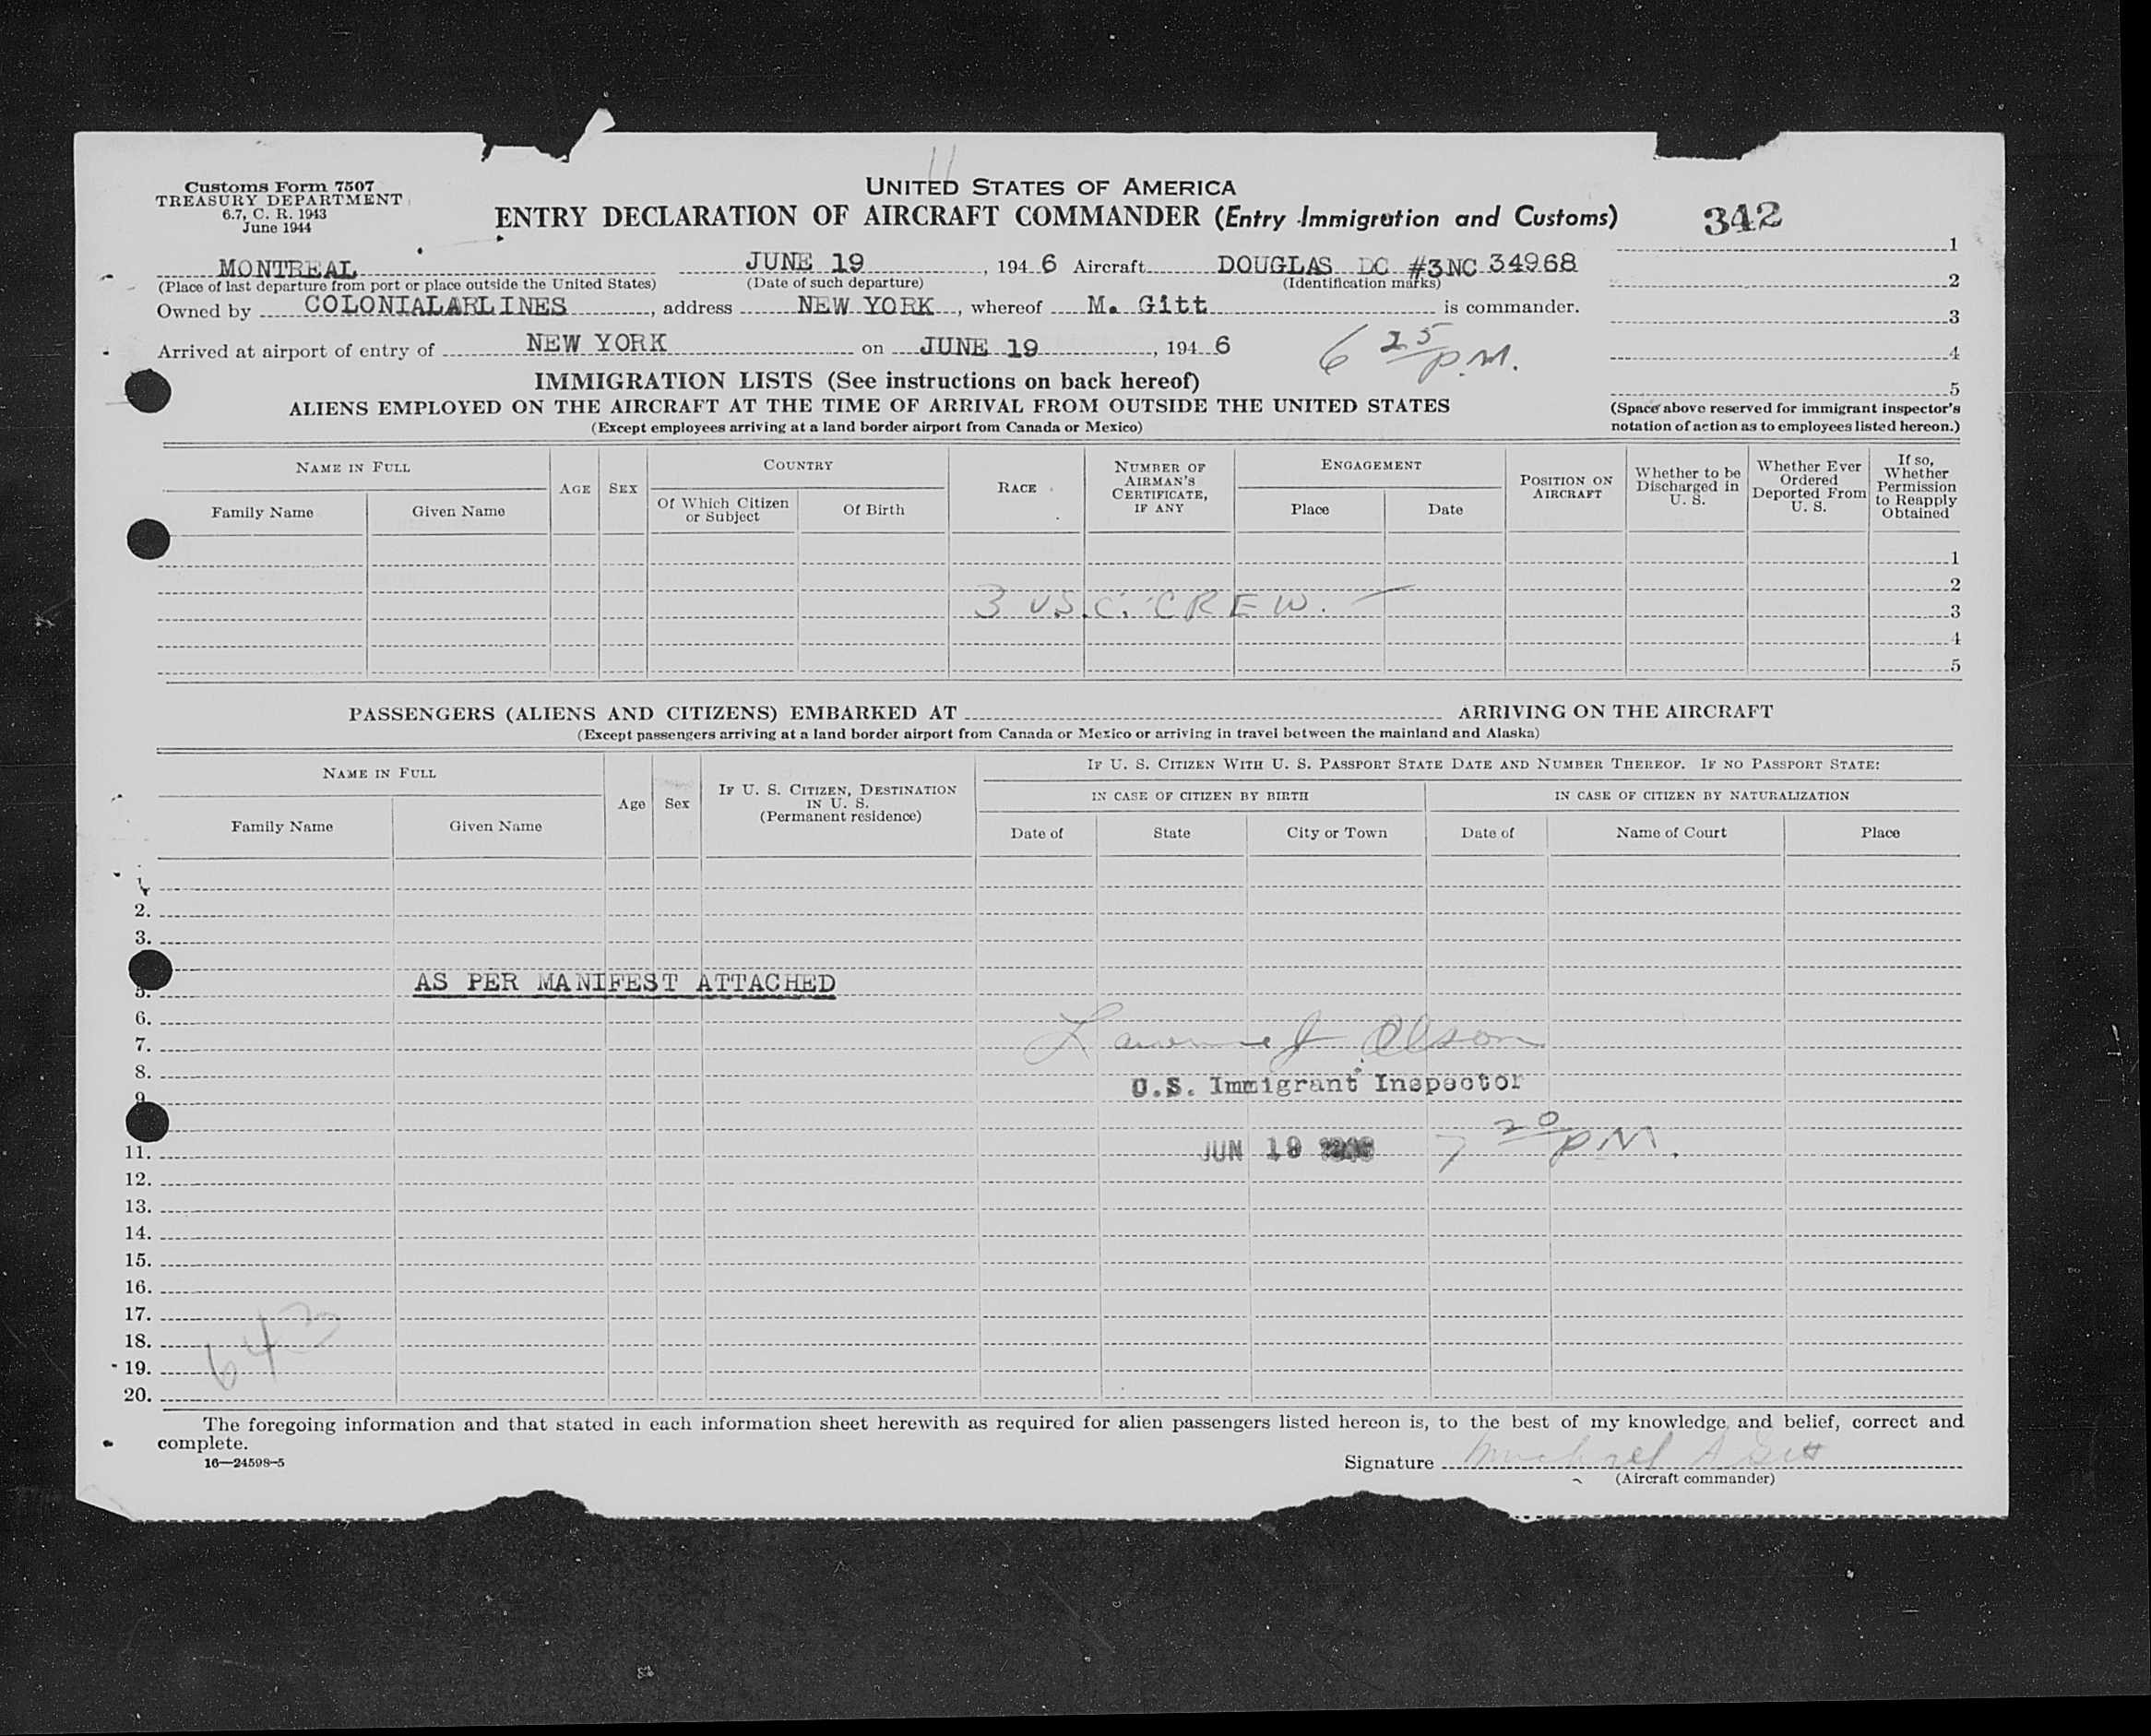 Customs Form 7507
TREASURY DEPARTMENT
6.7, C. R. 1943
June 1944
UNITED STATES OF AMERICA
ENTRY DECLARATION OF AIRCRAFT COMMANDER (Entry Immigration and Customs)
342
MONTREAL JUNE 19, 194 6 Aircraft DOUGLAS DC #3NC 34968
(Place of last departure from port or place outside the United States) (Date of such departure) (Identification marks)
Owned by COLONIALARLINES, address NEW YORK, whereof M. Gitt is commander.
Arrived at airport of entry of NEW YORK on JUNE 19, 194 6
6 25 P.M.
1
2
3
4
5
(Space above reserved for immigrant inspector's
notation of action as to employees listed hereon.)
IMMIGRATION LISTS (See instructions on back hereof)
ALIENS EMPLOYED ON THE AIRCRAFT AT THE TIME OF ARRIVAL FROM OUTSIDE THE UNITED STATES
(Except employees arriving at a land border airport from Canada or Mexico)
NAME IN FULL
Family Name
Given Name
AGE
SEX
COUNTRY
Of Which Citizen
or Subject
Of Birth
RACE
NUMBER OF
AIRMAN'S
CERTIFICATE,
IF ANY
ENGAGEMENT
Place
Date
POSITION ON
AIRCRAFT
Whether to be
Discharged in
U. S.
Whether Ever
Ordered
Deported From
U. S.
If so,
Whether
Permission
to Reapply
Obtained
1
2
3 U.S.C. CREW.
3
4
5
PASSENGERS (ALIENS AND CITIZENS) EMBARKED AT ARRIVING ON THE AIRCRAFT
(Except passengers arriving at a land border airport from Canada or Mexico or arriving in travel between the mainland and Alaska)
NAME IN FULL
Family Name
Given Name
Age
Sex
IF U. S. CITIZEN, DESTINATION
IN U. S.
(Permanent residence)
IF U. S. CITIZEN WITH U. S. PASSPORT STATE DATE AND NUMBER THEREOF. IF NO PASSPORT STATE:
IN CASE OF CITIZEN BY BIRTH
IN CASE OF CITIZEN BY NATURALIZATION
Date of
State
City or Town
Date of
Name of Court
Place
2.
3.
AS PER MANIFEST ATTACHED
5.
6.
7. Lawrence J Olson
8. U.S. Immigrant Inspector
9
11. JUN 19 7 20 P.M.
12.
13.
14.
15.
16.
17.
18. 643
19.
20.
The foregoing information and that stated in each information sheet herewith as required for alien passengers listed hereon is, to the best of my knowledge and belief, correct and
complete.
16—24598-5
Signature Michael A Gitt
(Aircraft commander)